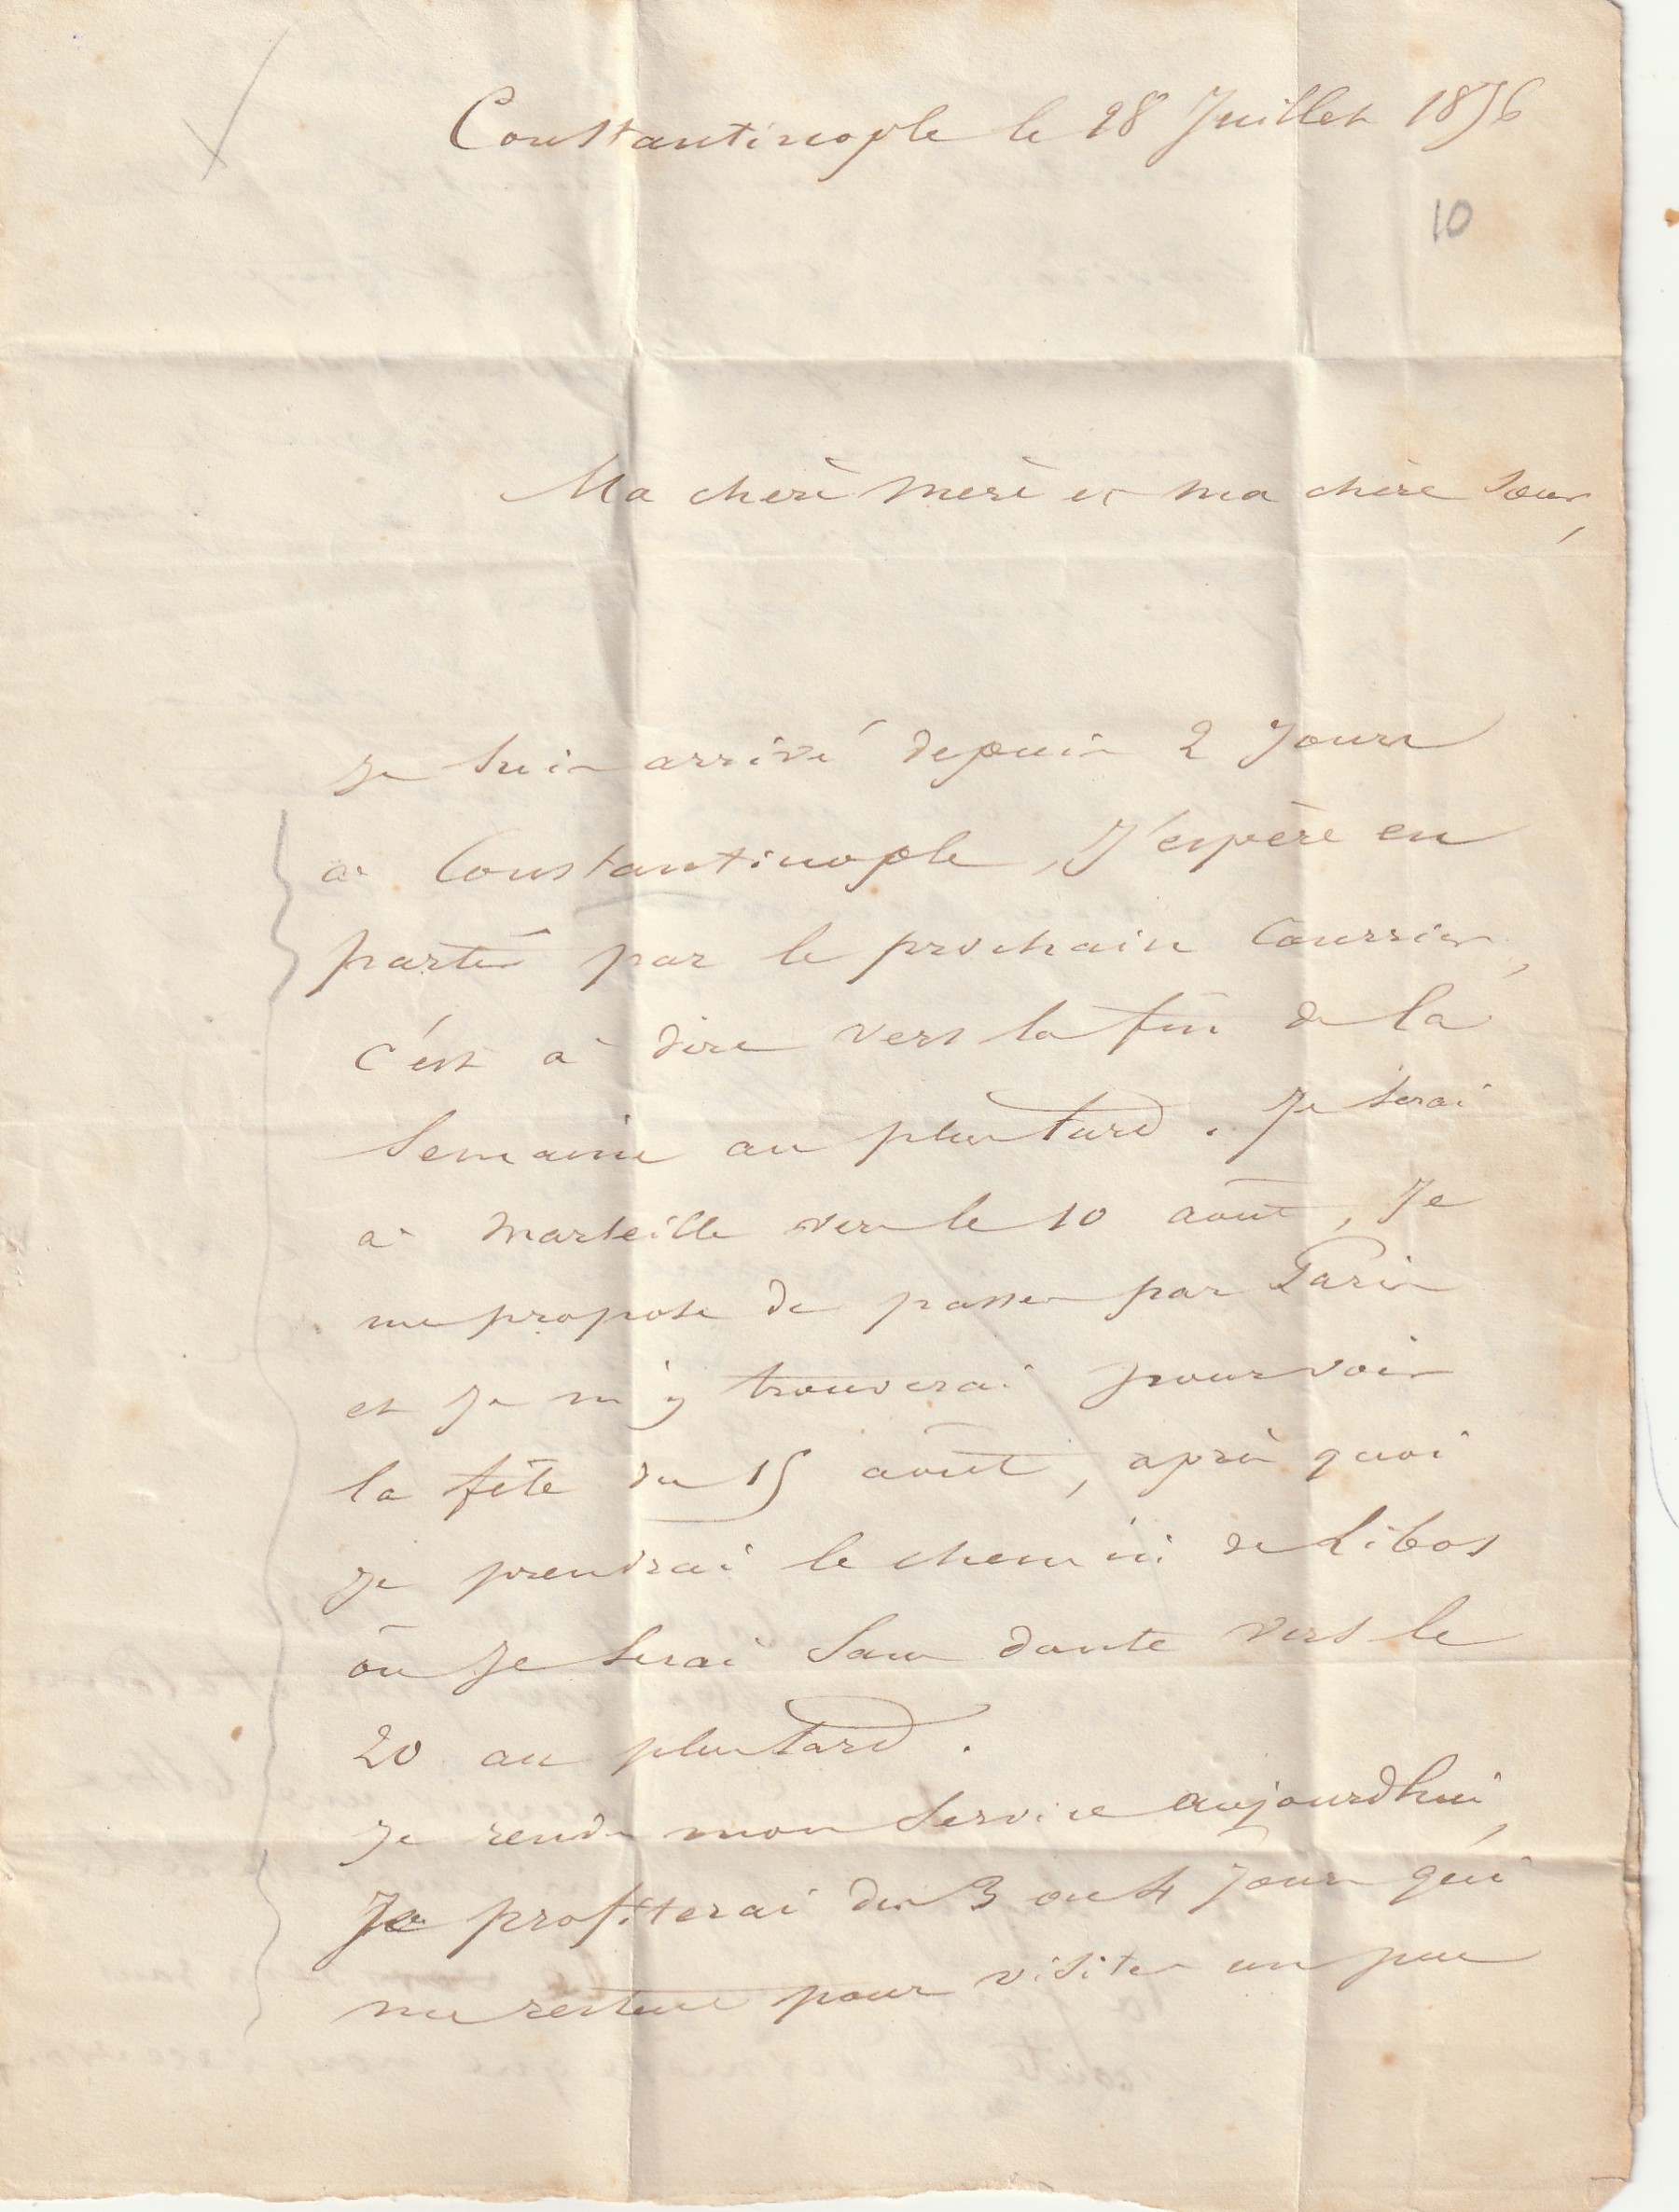 Constantinople le 28 Juillet 1856
10
Ma chère mère et ma chère soeur,
Je suis arrivé depuis 2 Jours
à Constantinople, J'espère en
partir par le prochain Courrier,
c'est à dire vers la fin de la
semaine au plus tard. Je serai
à Marseille vers le 10 août, Je
me propose de passer par Paris
et Je m'y trouverai pour voir
la fête du 15 août, après quoi
Je prendrai le chemin de Libos
où Je serai sans doute vers le
20 au plus tard.
Je rends mon service aujourdhui,
Je profiterai des 3 ou 4 Jours qui
me restent pour visiter un peu